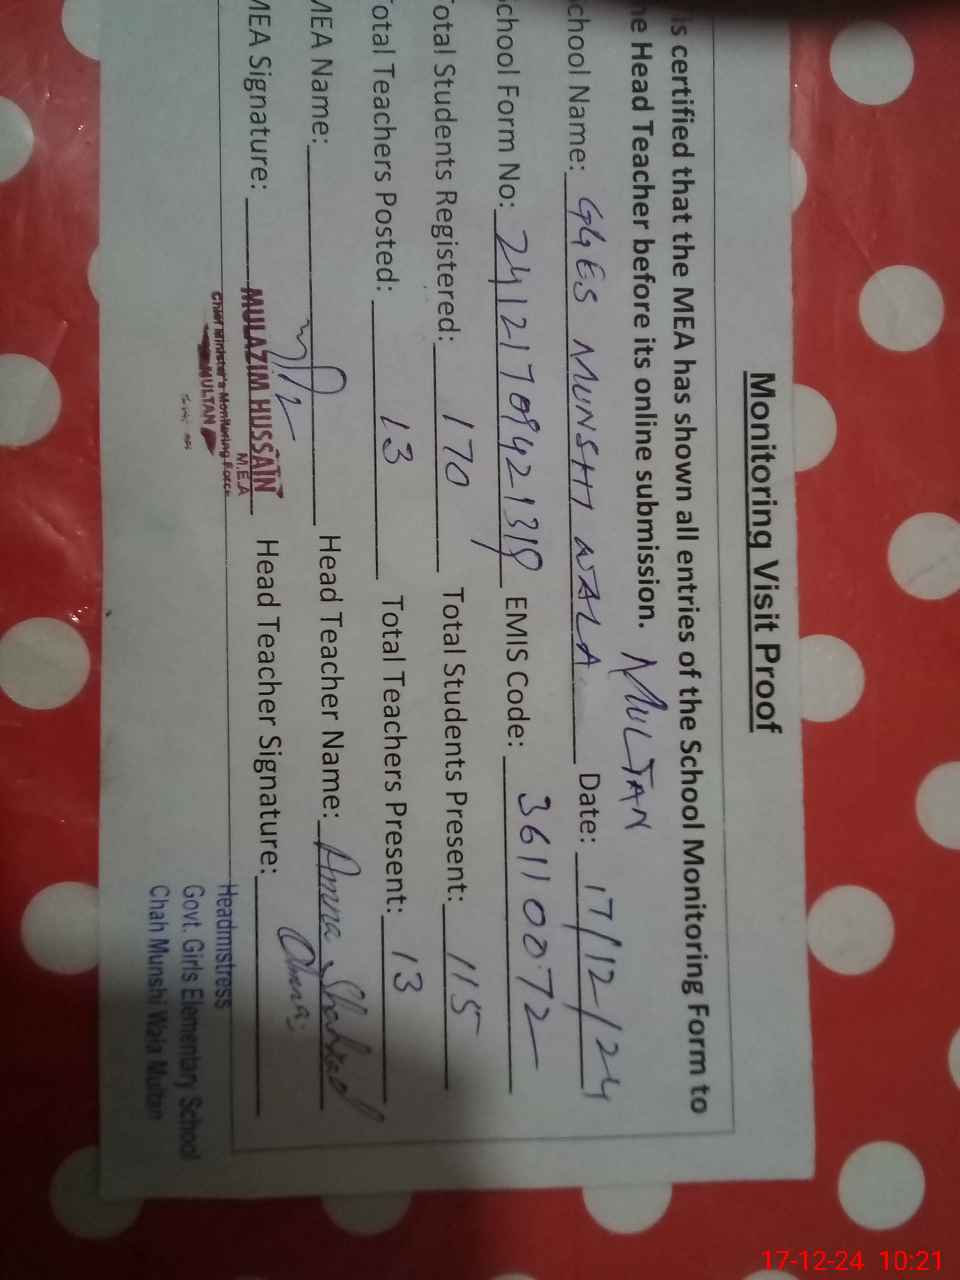 Monitoring Visit Proof
is certified that the MEA has shown all entries of the School Monitoring Form to
he Head Teacher before its online submission. MULTAN
chool Name: GGES MUNSHI WALA Date: 17/12/24
chool Form No: EMIS Code: 36110072
otal Students Registered: 170 Total Students Present: 115
otal Teachers Posted: 13 Total Teachers Present: 13
MEA Name: Head Teacher Name: Amna Shahzad
MEA Signature: Head Teacher Signature: Amna
MULAZIM HUSSAIN
M.E.A
Chief Minister's Monitoring Force
MULTAN
Headmistress
Govt. Girls Elementary School
Chah Munshi Wala Multan
17-12-24 10:21